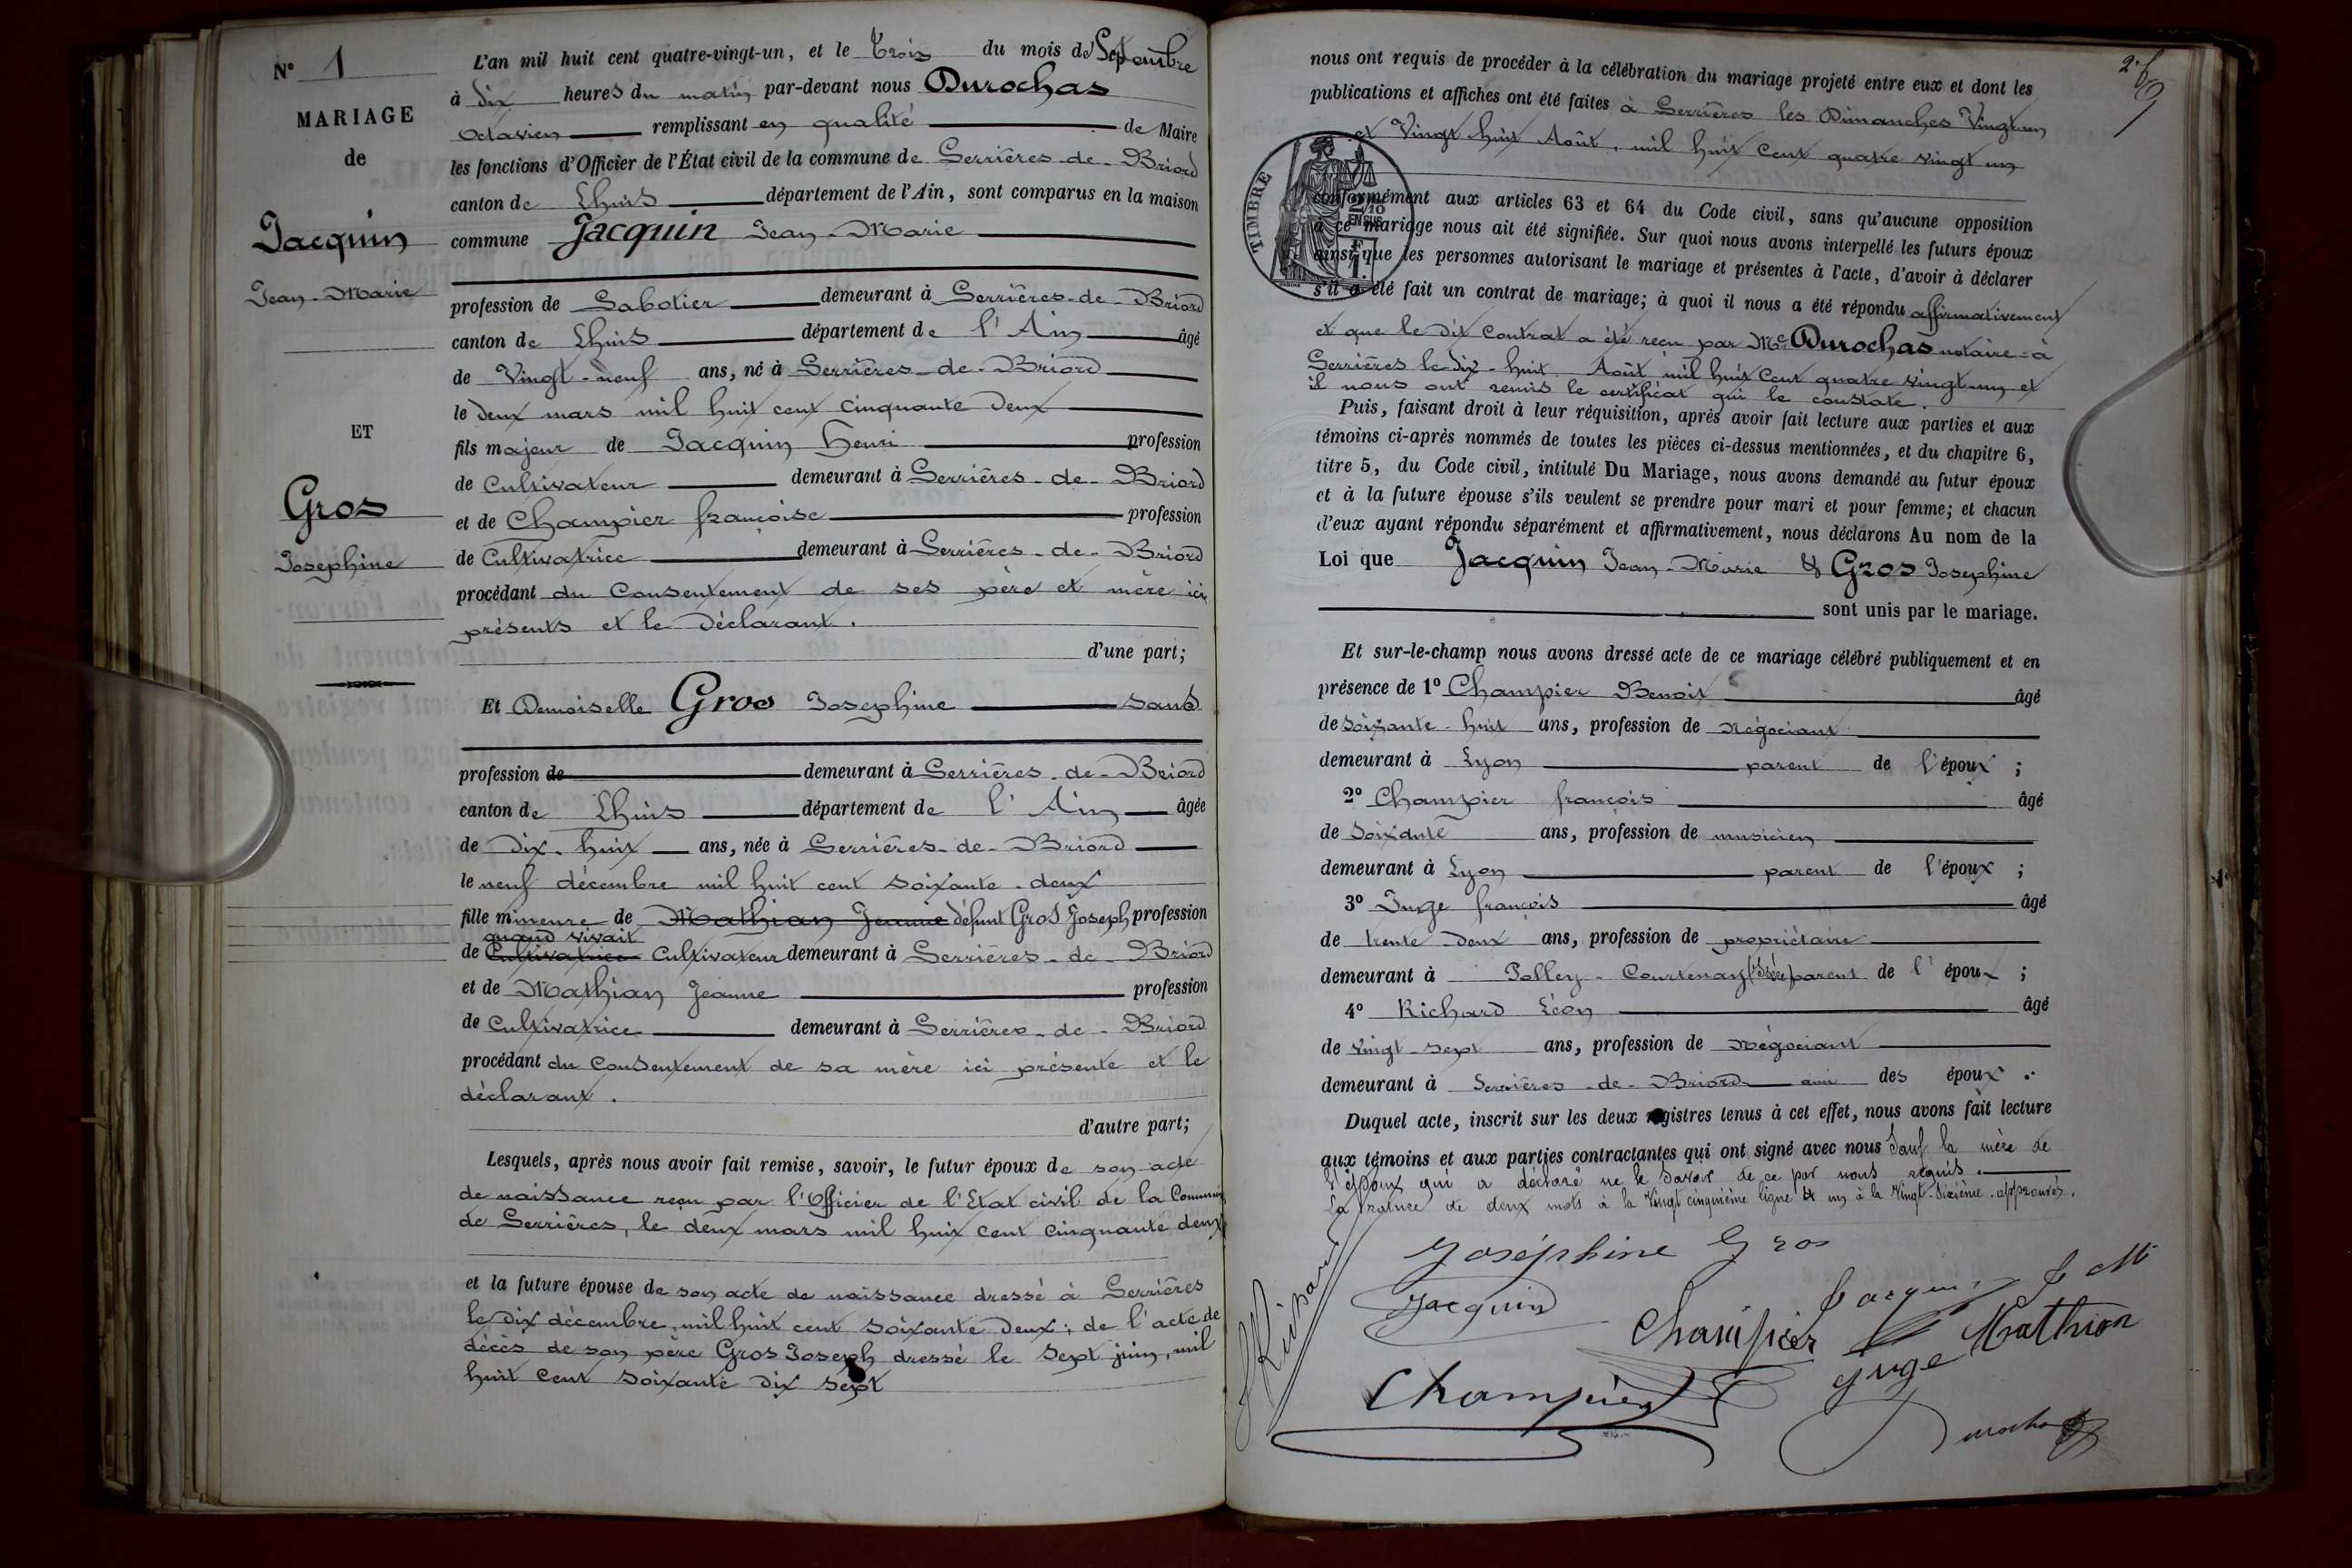 N° 1
MARIAGE
de
Jacquin
Jean-Marie
ET
Gros
Josephine
L'an mil huit cent quatre-vingt-un, et le Trois du mois de Septembre
à Dix heures du matin par-devant nous Durochas
Octavien remplissant en qualité de Maire
les fonctions d'Officier de l'État civil de la commune de Serrières-de-Briord
canton de Lhuis département de l'Ain, sont comparus en la maison
commune Jacquin Jean-Marie
profession de Sabotier demeurant à Serrières-de-Briord
canton de Lhuis département de l'Ain âgé
de Vingt-neuf ans, né à Serrières-de-Briord
le deux mars mil huit cent cinquante deux
fils majeur de Jacquin Henri profession
de Cultivateur demeurant à Serrières-de-Briord
et de Champier françoise profession
de Cultivatrice demeurant à Serrières-de-Briord
procédant du Consentement de ses père et mère ici
présents et le Déclarant.
d'une part;
Et Demoiselle Gros Josephine sans
profession de demeurant à Serrières-de-Briord
canton de Lhuis département de l'Ain âgée
de Dix-huit ans, née à Serrières-de-Briord
le neuf décembre mil huit cent soixante-deux
fille mineure de Mathian Jeanne défunt Gros Joseph profession
quand vivait
de Cultivatrice Cultivateur demeurant à Serrières-de-Briord
et de Mathian Jeanne profession
de Cultivatrice demeurant à Serrières-de-Briord
procédant du Consentement de sa mère ici présente et le
déclarant.
d'autre part;
Lesquels, après nous avoir fait remise, savoir, le futur époux de son acte
de naissance reçu par l'Officier de l'Etat civil de la Commune
de Serrières, le deux mars mil huit cent cinquante deux
et la future épouse de son acte de naissance dressé à Serrières
le dix décembre mil huit cent soixante deux; de l'acte de
décès de son père Gros Joseph dressé le sept juin, mil
huit cent soixante dix sept
nous ont requis de procéder à la célébration du mariage projeté entre eux et dont les
publications et affiches ont été faites à Serrières les Dimanches Vingt-un
et Vingt huit Août, mil huit cent quatre vingt un
TIMBRE
2/10
EN SUS
conformément aux articles 63 et 64 du Code civil, sans qu'aucune opposition
à ce mariage nous ait été signifiée. Sur quoi nous avons interpellé les futurs époux
ainsi que les personnes autorisant le mariage et présentes à l'acte, d'avoir à déclarer
s'il a été fait un contrat de mariage; à quoi il nous a été répondu affirmativement
et que le dit contrat a été reçu par Me Durochas notaire à
Serrières le dix-huit Août mil huit cent quatre vingt-un et
il nous ont remis le certificat qui le constate.
Puis, faisant droit à leur réquisition, après avoir fait lecture aux parties et aux
témoins ci-après nommés de toutes les pièces ci-dessus mentionnées, et du chapitre 6,
titre 5, du Code civil, intitulé Du Mariage, nous avons demandé au futur époux
et à la future épouse s'ils veulent se prendre pour mari et pour femme; et chacun
d'eux ayant répondu séparément et affirmativement, nous déclarons Au nom de la
Loi que Jacquin Jean-Marie & Gros Josephine
sont unis par le mariage.
Et sur-le-champ nous avons dressé acte de ce mariage célébré publiquement et en
présence de 1° Champier Benoit âgé
de soixante-huit ans, profession de Négociant
demeurant à Lyon parent de l'époux;
2° Champier françois âgé
de Soixante ans, profession de musicien
demeurant à Lyon parent de l'époux;
3° Juge françois âgé
de trente-deux ans, profession de propriétaire
demeurant à Polley-Courtenay (Isère) parent de l'époux;
4° Richard Léon âgé
de vingt-sept ans, profession de Négociant
demeurant à Serrières-de-Briord ami des époux.
Duquel acte, inscrit sur les deux registres tenus à cet effet, nous avons fait lecture
aux témoins et aux parties contractantes qui ont signé avec nous Sauf la mère de
l'époux qui a déclaré ne le savoir de ce par nous requis.
La rature de deux mots à la Vingt cinquième ligne & un à la Vingt-sixième approuvés.
Joséphine Gros
Jacquin
Jacquin J M
Champier
Mathian
Juge
Champier
Richard
Durochas